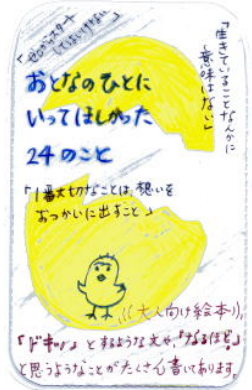 「ゼロからスタート
してはいけない」
「生きていることなんかに
意味はない」
おとなのひとに
いってほしかった
24のこと
「1番大切なことは、想いを
おっかいに出すこと」
((大人向け絵本))
「ドキッ」とするような文や、「なるほど」
と思うようなことがたくさん書いてあります。